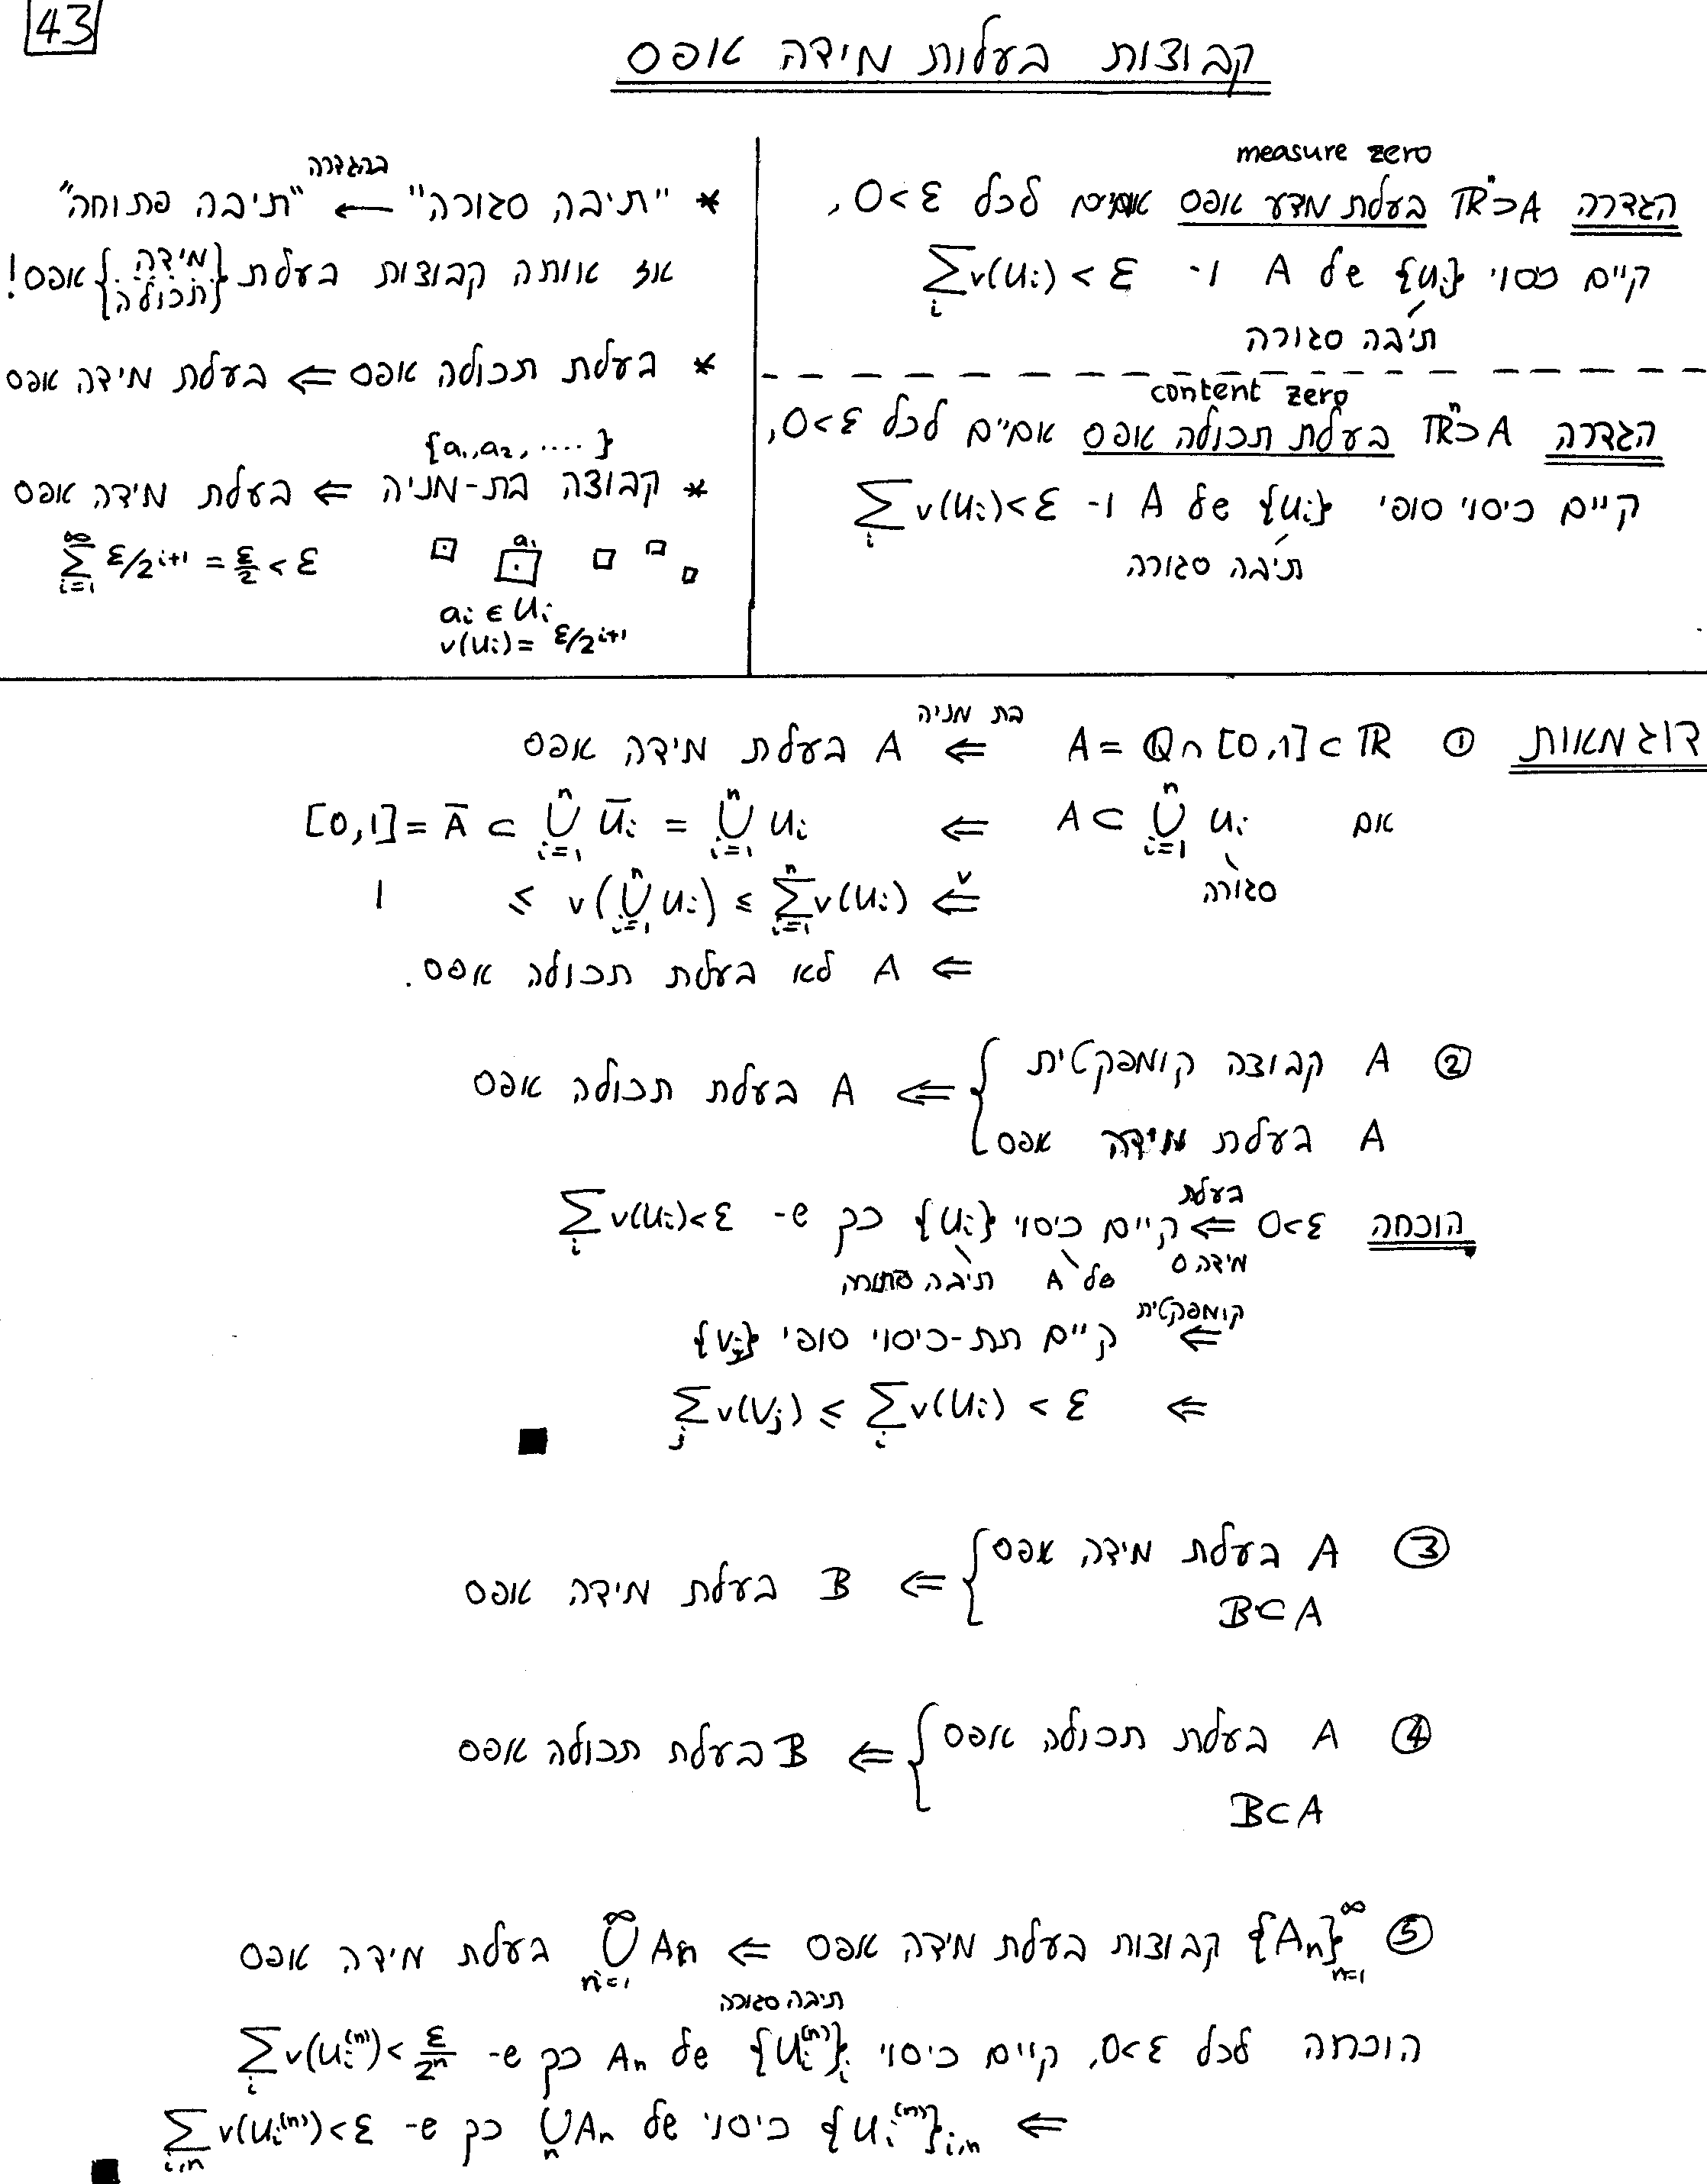 43
קבוצות בעלות מידה אפס
measure zero
הגדרה A⊂ℝⁿ בעלת מדע אפס אמ״ם לכל ε>0,
קיים כסוי {Uᵢ} של A ו- ∑ᵢ v(Uᵢ) < ε
תיבה סגורה
content zero
הגדרה A⊂ℝⁿ בעלת תכולה אפס אמ״ם לכל ε>0,
קיים כיסוי סופי {Uᵢ} של A ו- ∑ᵢ v(Uᵢ) < ε
תיבה סגורה
בהגדרה
* "תיבה סגורה" ← "תיבה פתוחה"
אז אותה קבוצות בעלת {מידה / תכולה} אפס!
* בעלת תכולה אפס ⇐ בעלת מידה אפס
{a₁, a₂, ....}
* קבוצה בת-מניה ⇐ בעלת מידה אפס
aᵢ
∑_{i=1}^{∞} ε/2^{i+1} = ε/2 < ε
aᵢ ∈ Uᵢ
v(Uᵢ) = ε/2^{i+1}
דוגמאות ① A = ℚ∩[0,1] ⊂ ℝ ⇐ (בת מניה) A בעלת מידה אפס
אם A ⊂ ⋃_{i=1}^{n} Uᵢ ⇐ [0,1] = A̅ ⊂ ⋃_{i=1}^{n} U̅ᵢ = ⋃_{i=1}^{n} Uᵢ
סגורה
⇐ (v) 1 ≤ v(⋃_{i=1}^{n} Uᵢ) ≤ ∑_{i=1}^{n} v(Uᵢ)
⇐ A לא בעלת תכולה אפס.
② A קבוצה קומפקטית
A בעלת מידה אפס } ⇐ A בעלת תכולה אפס
הוכחה ε>0 ⇐ (בעלת מידה 0) קיים כיסוי {Uᵢ} כך ש- ∑ᵢ v(Uᵢ) < ε
של A תיבה פתוחה
⇐ (קומפקטית) קיים תת-כיסוי סופי {Vⱼ}
⇐ ∑ⱼ v(Vⱼ) ≤ ∑ᵢ v(Uᵢ) < ε ■
③ A בעלת מידה אפס
B⊂A } ⇐ B בעלת מידה אפס
④ A בעלת תכולה אפס
B⊂A } ⇐ B בעלת תכולה אפס
⑤ {Aₙ}_{n=1}^{∞} קבוצות בעלת מידה אפס ⇐ ⋃_{n=1}^{∞} Aₙ בעלת מידה אפס
תיבה סגורה
הוכחה לכל ε>0, קיים כיסוי {Uᵢ⁽ⁿ⁾}ᵢ של Aₙ כך ש- ∑ᵢ v(Uᵢ⁽ⁿ⁾) < ε/2ⁿ
⇐ {Uᵢ⁽ⁿ⁾}_{i,n} כיסוי של ⋃ₙ Aₙ כך ש- ∑_{i,n} v(Uᵢ⁽ⁿ⁾) < ε ■